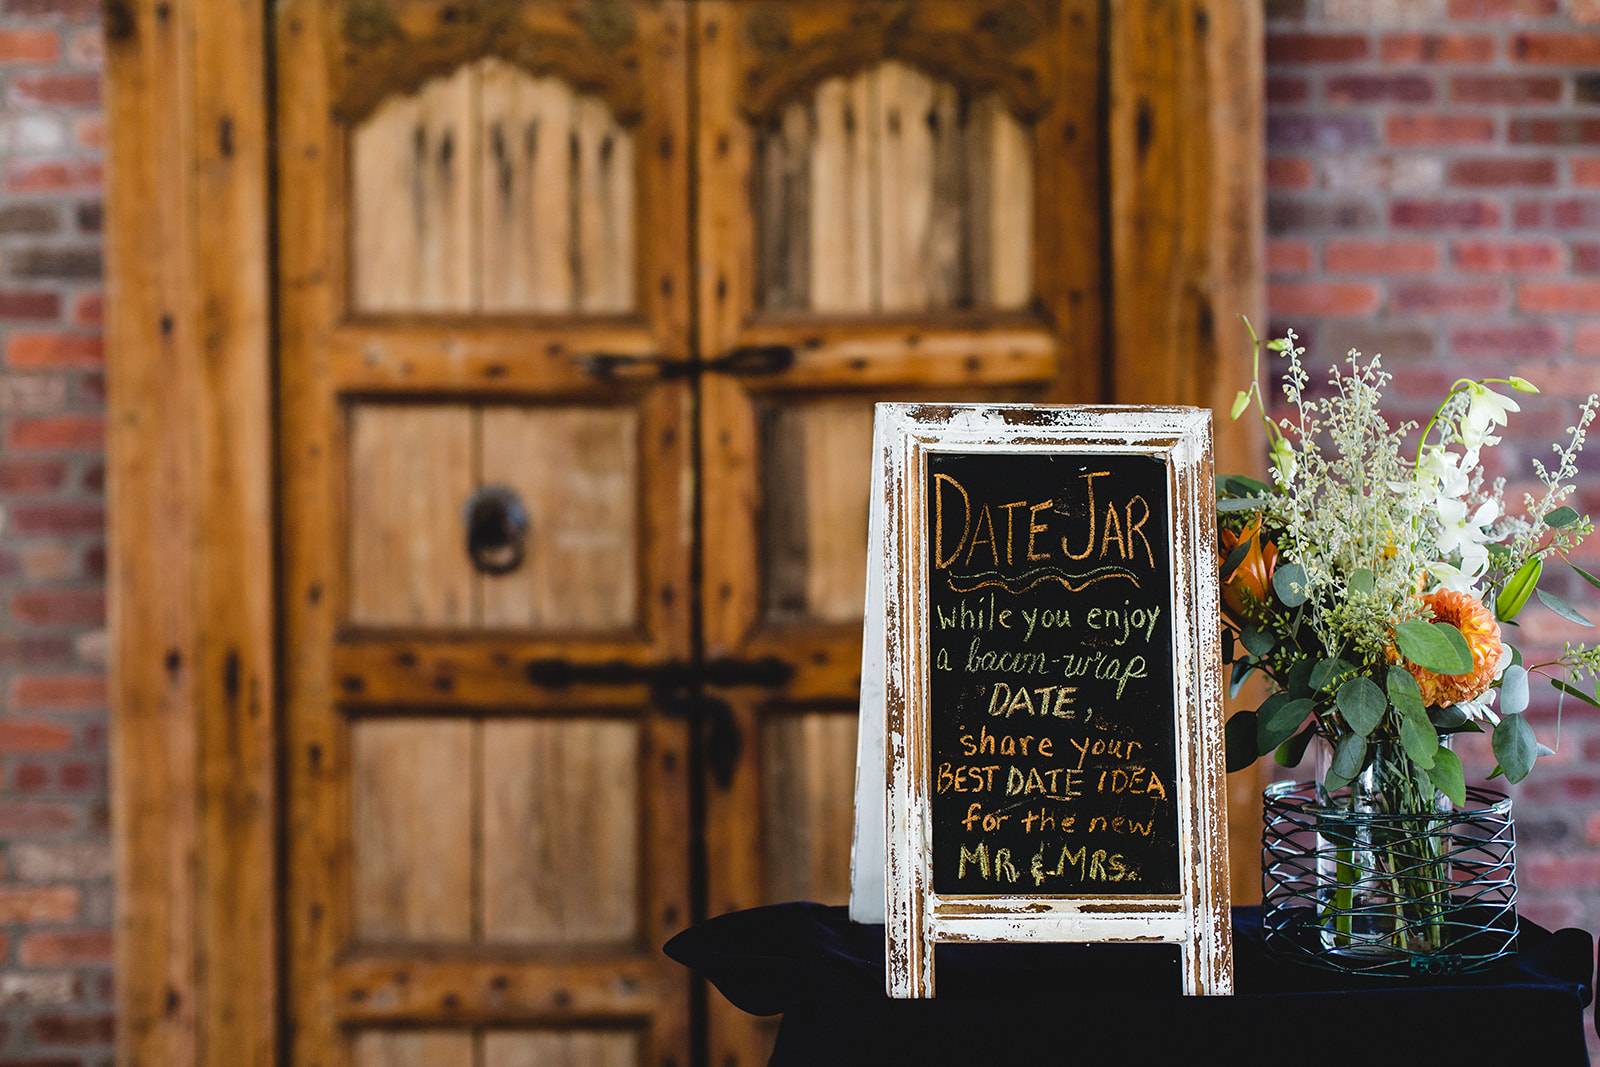 DATE JAR
while you enjoy
a bacon-wrap
DATE,
share your
BEST DATE IDEA
for the new
MR. & MRS.